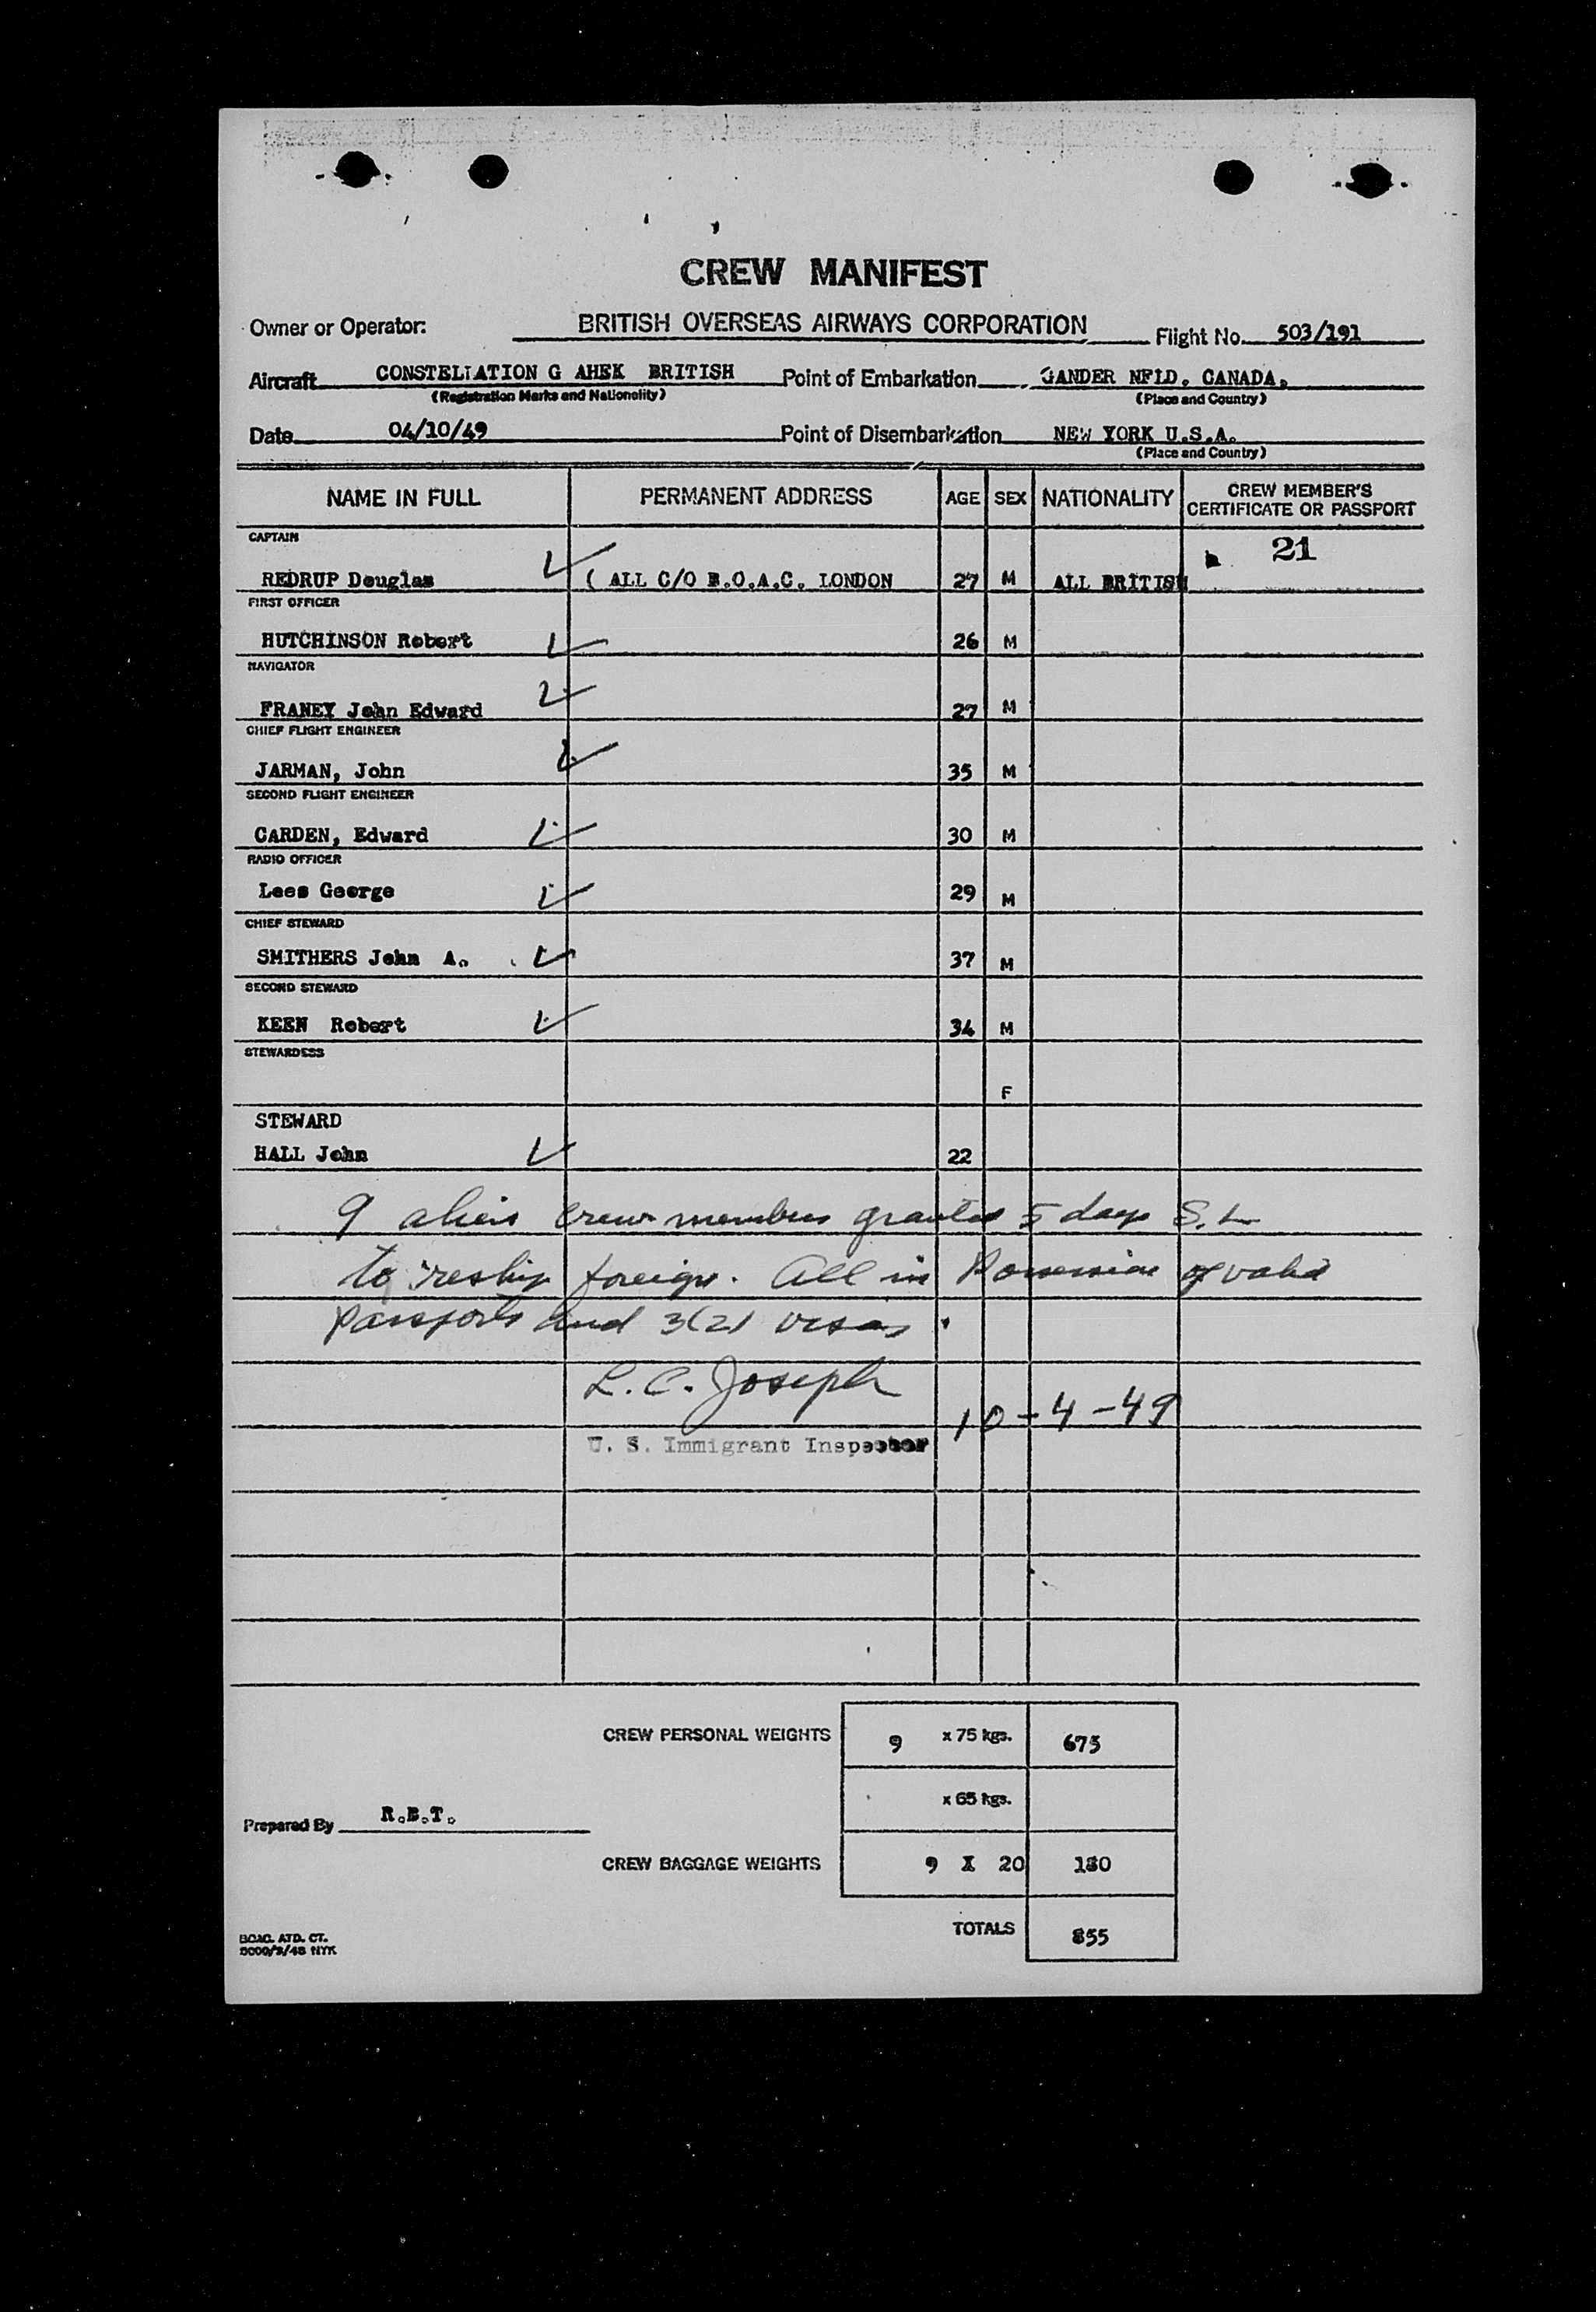 CREW MANIFEST
Owner or Operator: BRITISH OVERSEAS AIRWAYS CORPORATION Flight No. 503/191
Aircraft CONSTELLATION G AHEK BRITISH Point of Embarkation GANDER NFLD. CANADA.
(Registration Marks and Nationality) (Place and Country)
Date 04/10/49 Point of Disembarkation NEW YORK U.S.A.
(Place and Country)
NAME IN FULL PERMANENT ADDRESS AGE SEX NATIONALITY CREW MEMBER'S CERTIFICATE OR PASSPORT
CAPTAIN 21
REDRUP Douglas ( ALL C/O B.O.A.C. LONDON 27 M ALL BRITISH
FIRST OFFICER
HUTCHINSON Robert 26 M
NAVIGATOR
FRANEY John Edward 27 M
CHIEF FLIGHT ENGINEER
JARMAN, John 35 M
SECOND FLIGHT ENGINEER
CARDEN, Edward 30 M
RADIO OFFICER
Lees George 29 M
CHIEF STEWARD
SMITHERS John A. 37 M
SECOND STEWARD
KEEN Robert 34 M
STEWARDESS
F
STEWARD
HALL John 22
9 alien crew members granted 5 days S.L.
to reship foreign. All in Possession of valid
passports and 3(2) visas.
L. C. Joseph 10-4-49
U. S. Immigrant Inspector
CREW PERSONAL WEIGHTS 9 x 75 kgs. 675
x 65 kgs.
Prepared By R.B.T.
CREW BAGGAGE WEIGHTS 9 X 20 180
TOTALS 855
BOAC. ATD. CT.